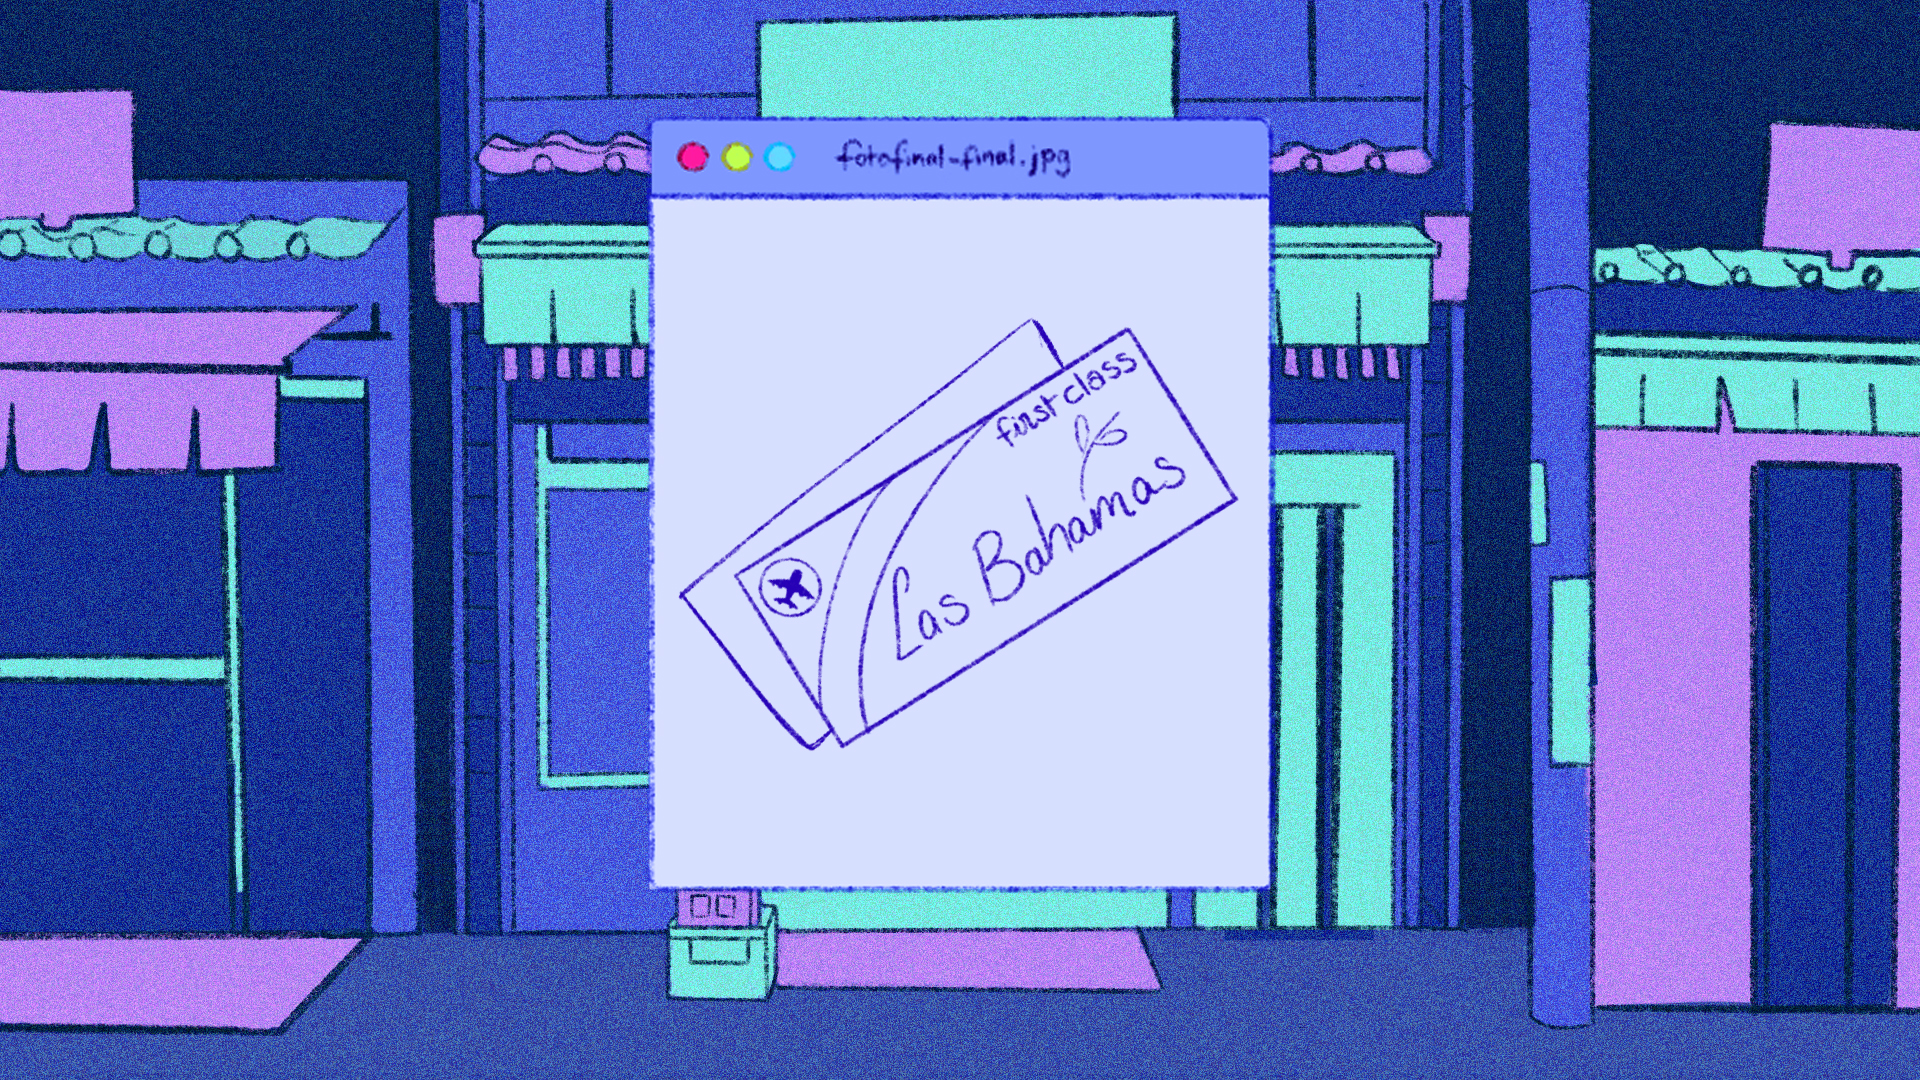 fotofinal-final.jpg
first class
Las Bahamas